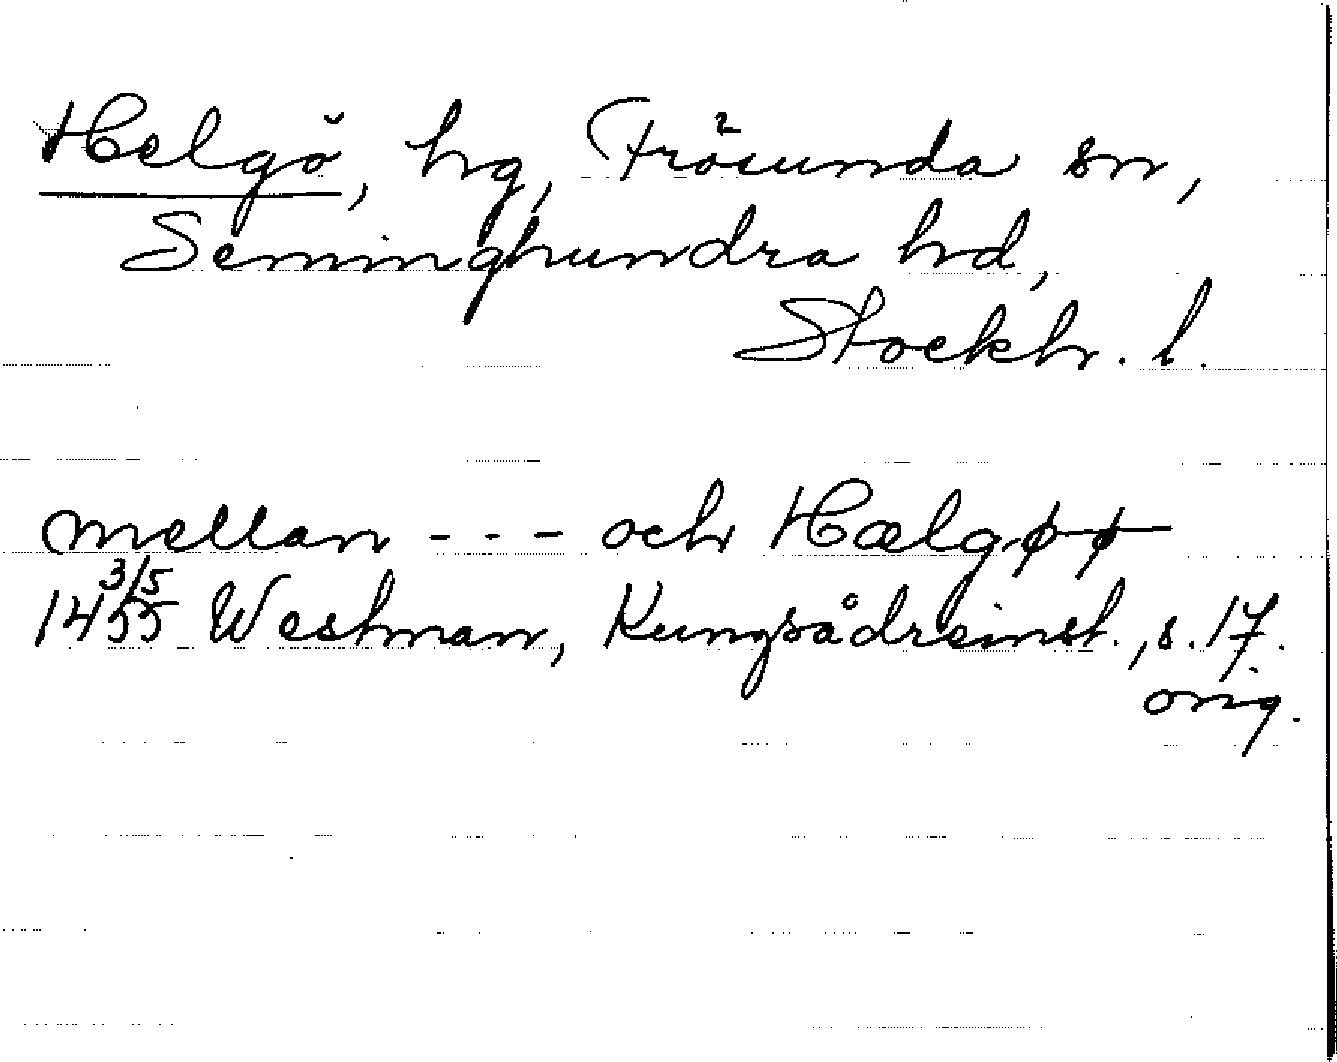 Helgö, hg, Frösunda sn,
Seminghundra hd,
Stockh. l.
mellan - - - och Hælgøø
14 3/5 55 Westman, Kungsådreinst., s. 17.
orig.